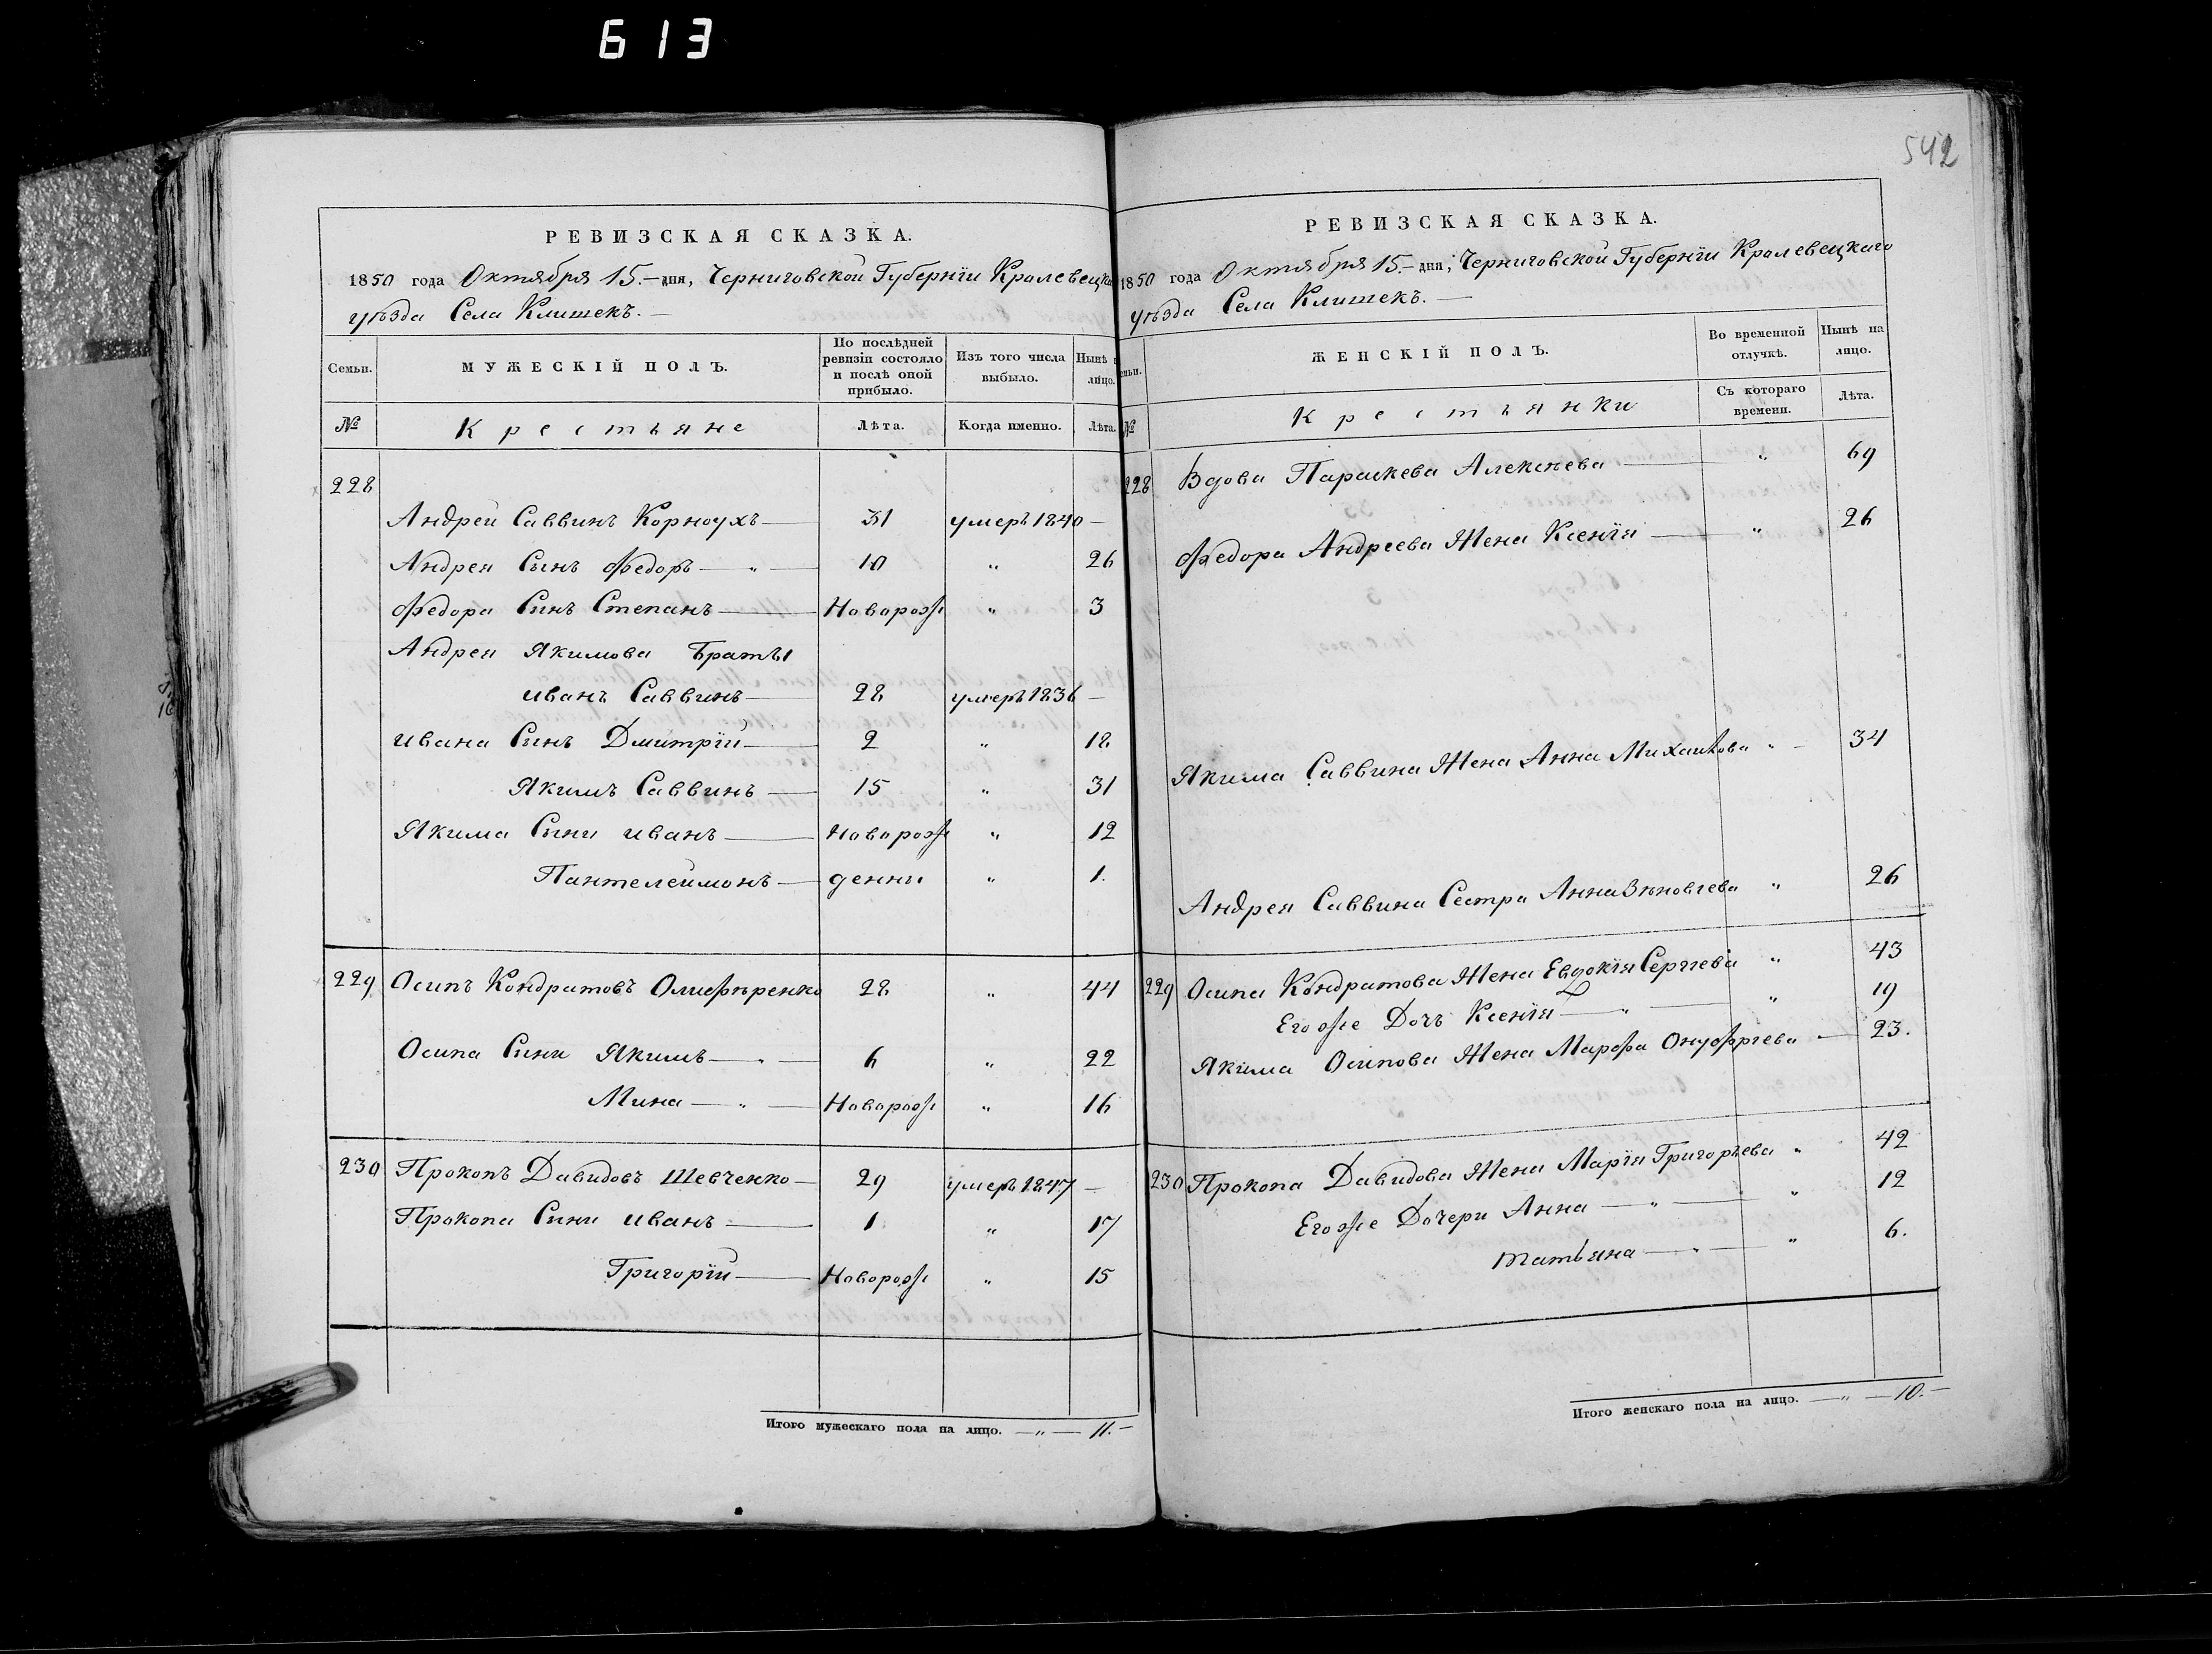 613
542
РЕВИЗСКАЯ СКАЗКА.
1850 года Октября 15.– дня, Черниговской Губерніи Кролевецка
уѣзда Села Клишекъ.
Семьи.
МУЖЕСКІЙ ПОЛЪ.
По послѣдней ревизіи состояло и послѣ оной прибыло.
Изъ того числа выбыло.
Нынѣ
лицо.
№
Крестьяне
Лѣта.
Когда именно.
Лѣта.
228
Андрей Саввинъ Корноухъ 31 умеръ 1840 –
Андрея Сынъ Федоръ 10 " 26
Федора Сынъ Степанъ Новорож " 3
Андрея Якимова Братьı
Иванъ Саввинъ 28 умеръ 1836 –
Ивана Сынъ Дмитрій 2 " 18
Якимъ Саввинъ 15 " 31
Якима Сыны Иванъ Новорож " 12
Пантелеймонъ денны " 1.
229 Осипъ Кондратовъ 28 " 44
Осипа Сыны Якимъ 6 " 22
Мина Новорож " 16
230 Прокопъ Давидовъ Шевченко 29 умеръ 1847 –
Прокопа Сыны Иванъ 1 " 17
Григорій Новорож " 15
Итого мужескаго пола на лицо. – " – 11.–
РЕВИЗСКАЯ СКАЗКА.
1850 года Октября 15.– дня, Черниговской Губерніи Кролевецкаго
уѣзда Села Клишекъ.
емьи.
ЖЕНСКІЙ ПОЛЪ.
Во временной отлучкѣ.
Нынѣ на лицо.
№
Крестьянки
Съ котораго времени.
Лѣта.
228 Вдова Параскева Алексѣева " 69
Федора Андреева Жена Ксенія " 26
Якима Саввина Жена Анна Михайлова " 34
Андрея Саввина Сестра Анна " 26
229 Осипа Кондратова Жена Евдокія Сергіева " 43
Его же Дочь Ксенія " 19
Якима Осипова Жена Марфа Онуфріева 23.
230 Прокопа Давидова Жена Марія Григорьева " 42
Его же Дочери Анна " 12
Татьяна " 6.
Итого женскаго пола на лицо. – " – 10.–